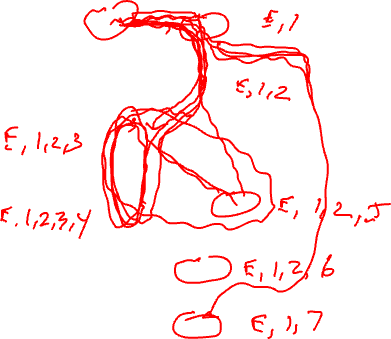 E, 1
E, 1, 2
E, 1, 2, 3
E. 1, 2, 3, 4
E, 1, 2, 5
E, 1, 2, 6
E, 1, 7